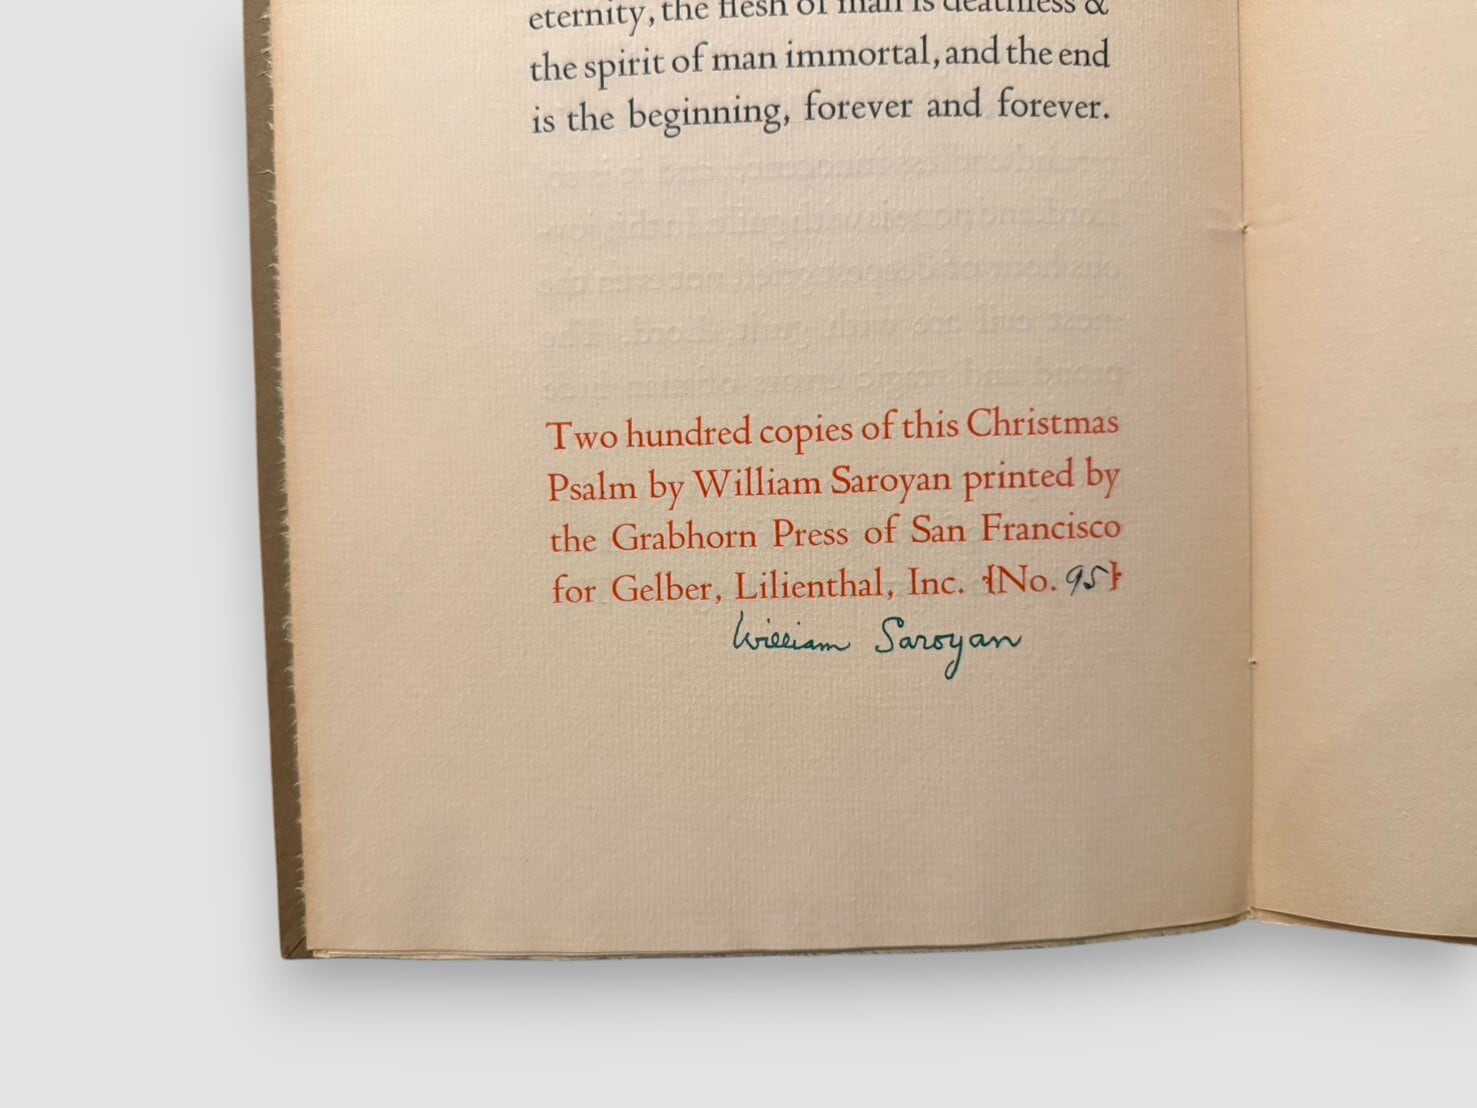 eternity, the flesh of man is deathless &
the spirit of man immortal, and the end
is the beginning, forever and forever.
Two hundred copies of this Christmas
Psalm by William Saroyan printed by
the Grabhorn Press of San Francisco
for Gelber, Lilienthal, Inc. {No. 95}
William Saroyan